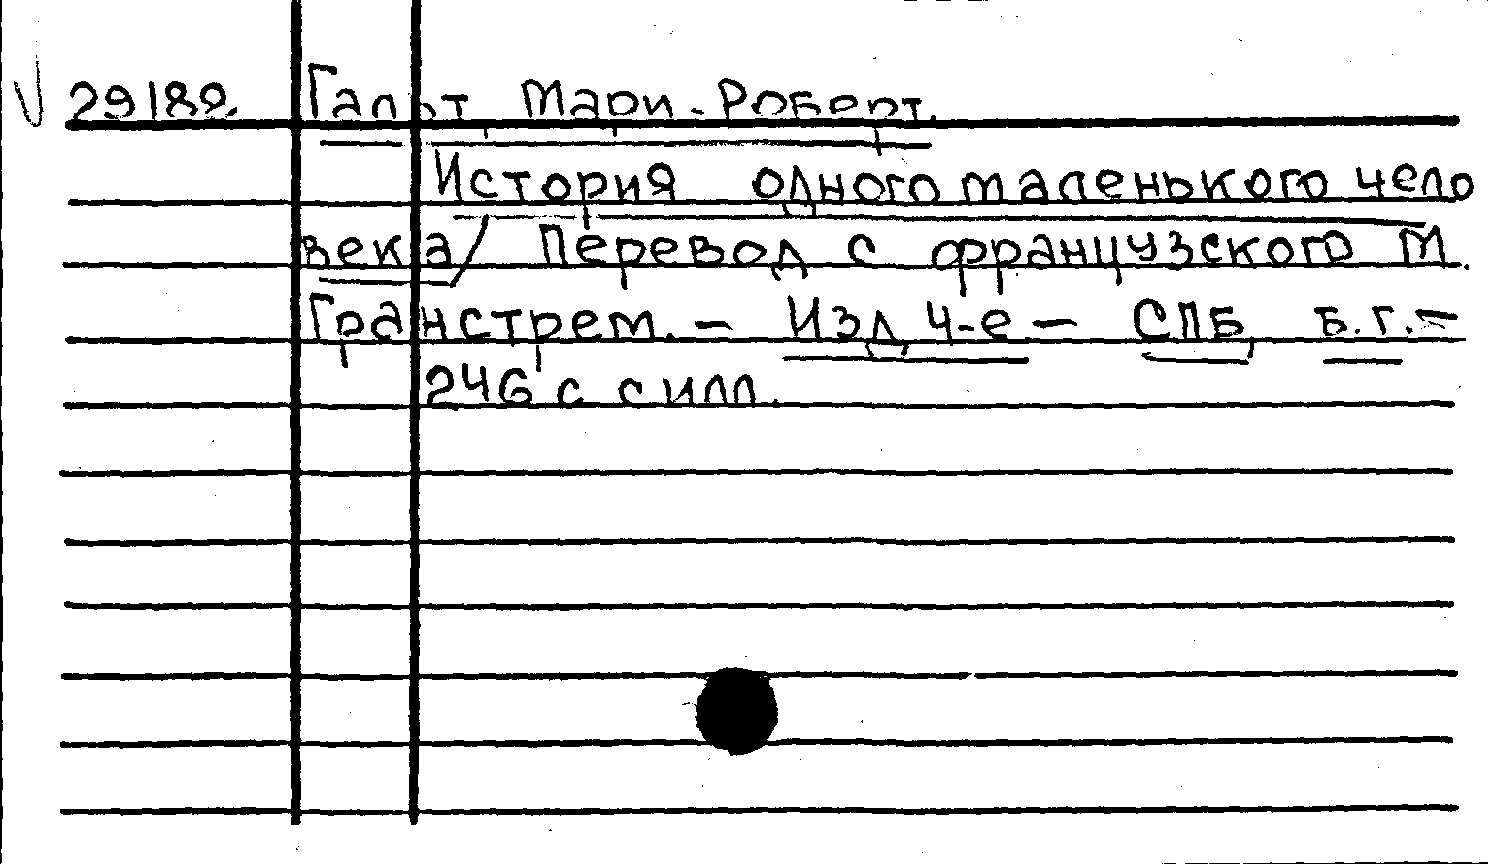 29182. Гальт, Мари-Роберт.
История одного маленького чело
века/ Перевод с французского М.
Гранстрем. – Изд. 4-е – СПБ, б.г. –
246 с. с илл.